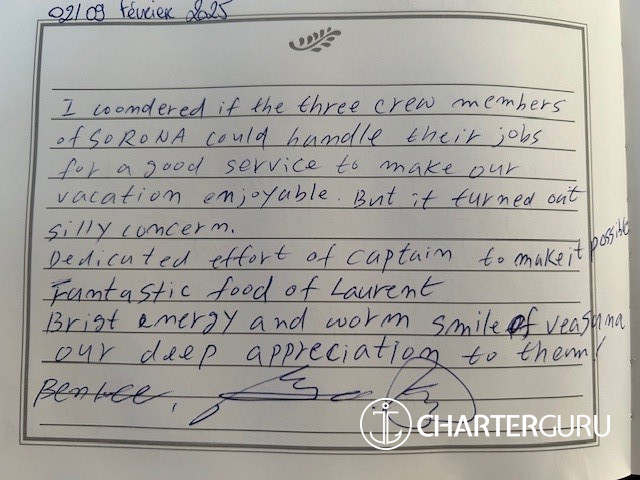 02/09 février 2025
I woondered if the three crew members
of SORONA could handle their jobs
for a good service to make our
vacation enjoyable. But it turned out
silly concern.
Dedicated effort of captain to make it possible
Fantastic food of Laurent
Brigt energy and worm smile of veasna
our deep appreciation to them!
CHARTERGURU